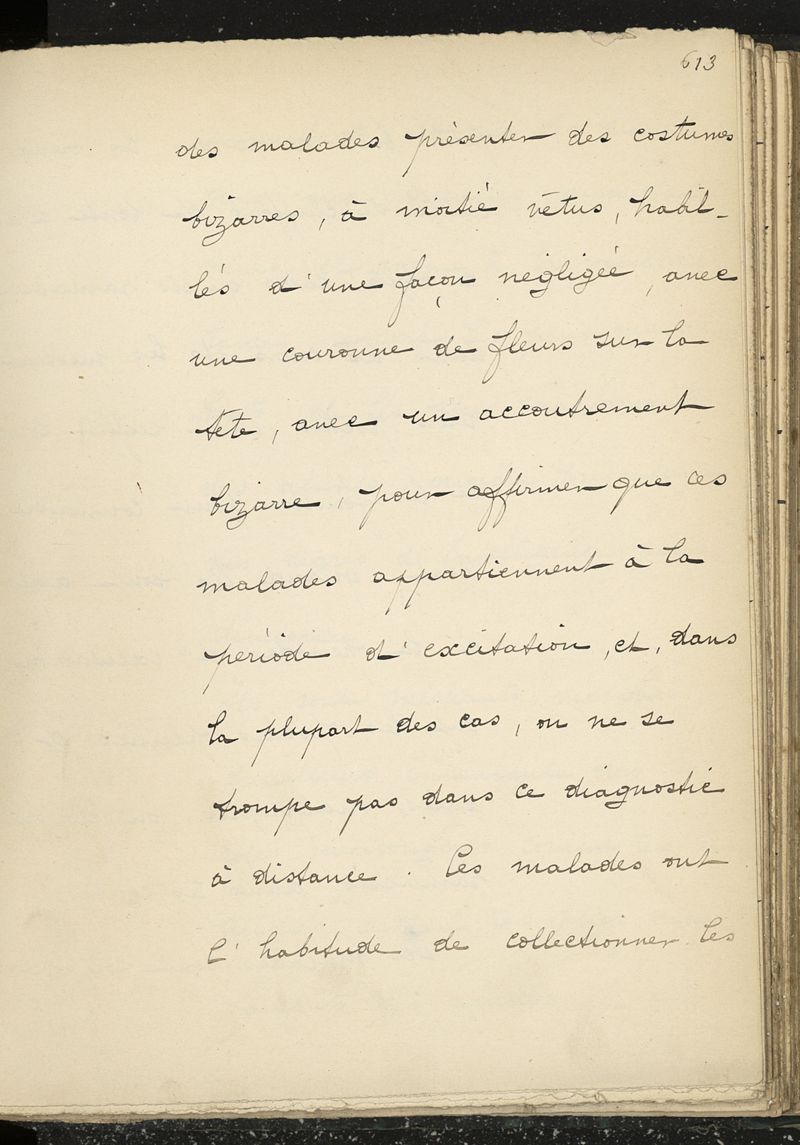 613
des malades présenter des costumes
bizarres, à moitié vêtus, habil-
lés d'une façon négligée, avec
une couronne de fleurs sur la
tête, avec un accoutrement
bizarre, pour affirmer que ces
malades appartiennent à la
période d'excitation, et, dans
la plupart des cas, on ne se
trompe pas dans ce diagnostic
à distance. Ces malades ont
l'habitude de collectionner les